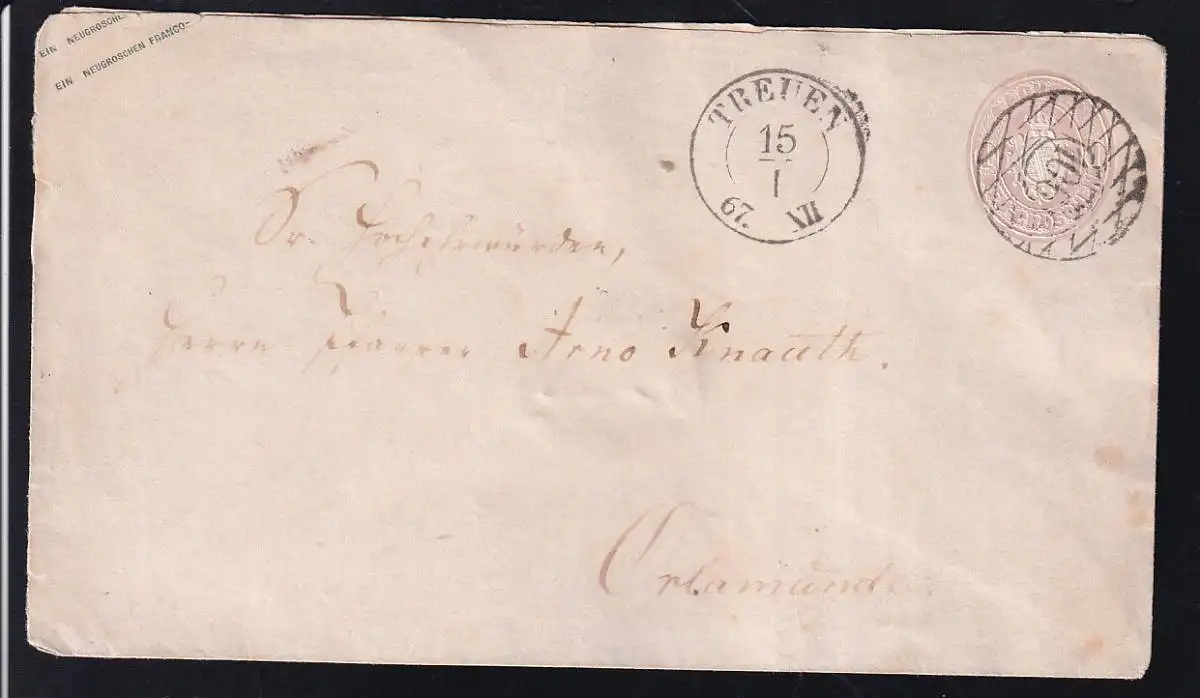 EIN NEUGROSCH
EIN NEUGROSCHEN FRANCO-
TREUEN
15
I
67. XII
Sr. Hochehrwürden,
Herrn Pfarrer Arno Knauth.
Orlamünde.